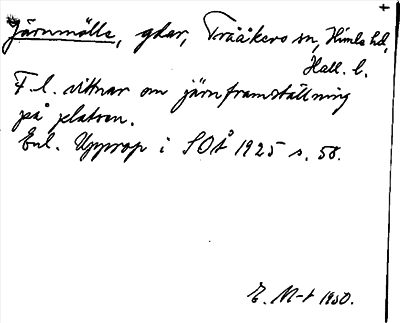 +
Järnmölle, gdar, Träåkers sn, Himle hd,
Hall. l.
F. l. vittnar om järnframställning
på platsen.
Enl. Upprop i SOÅ 1925 s. 58.
E. M-t 1930.